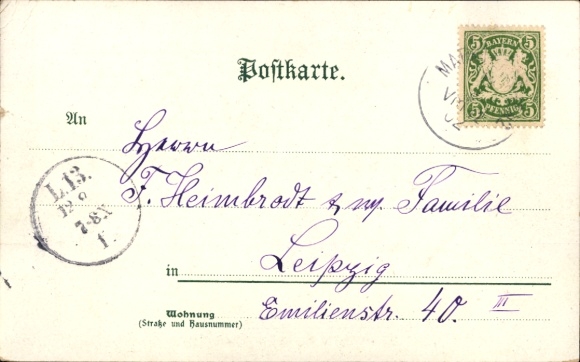 Postkarte.
5 BAYERN 5
5 PFENNIG 5
An
Herrn
F. Heimbrodt
Familie
L.13.
12 8
7-8N
1.
in Leipzig
Wohnung
(Straße und Hausnummer)
Emilienstr. 40. III